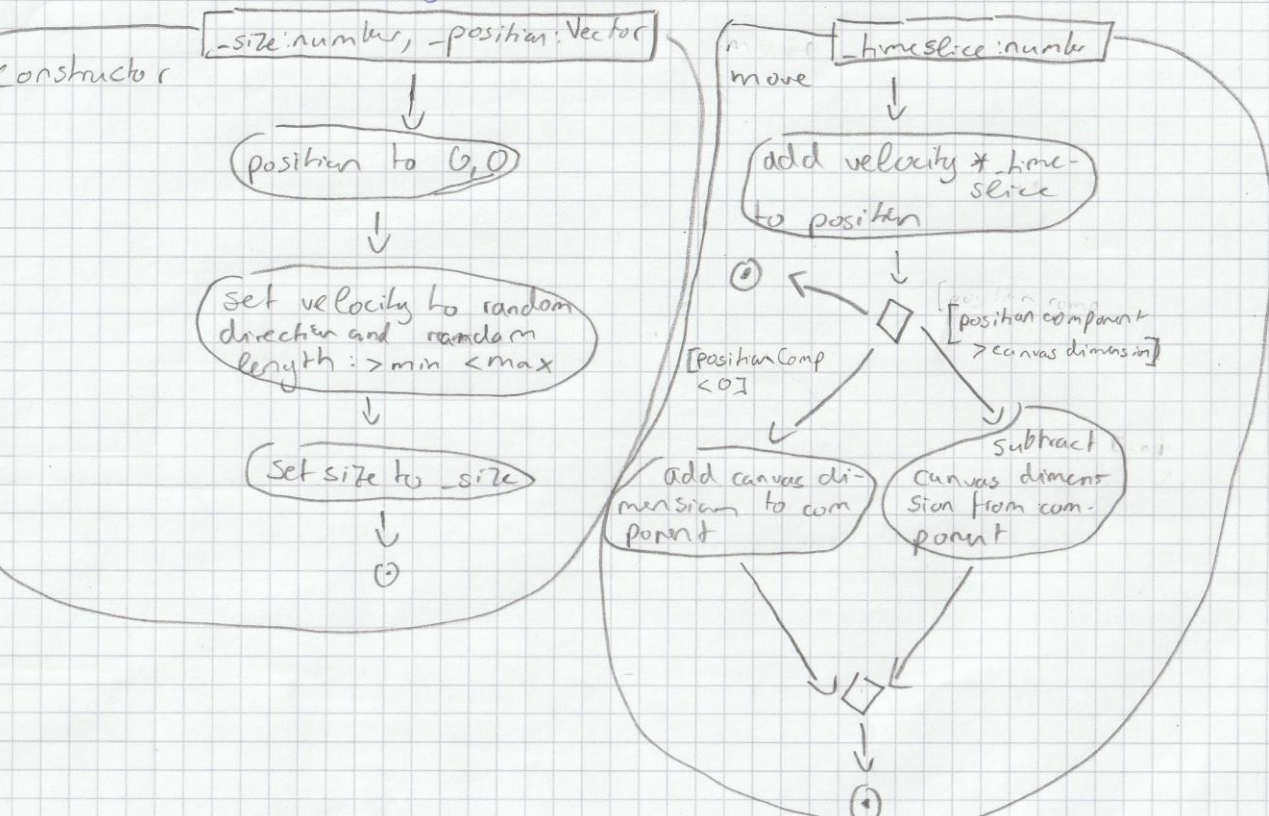 constructor
_size:number, _position:Vector
position to 0,0
set velocity to random
direction and random
length: >min <max
set size to _size
move
_timeslice:number
add velocity * _time-
slice
to position
[position component
>canvas dimension]
[positionComp
<0]
add canvas di-
mension to com
ponent
subtract
canvas dimen-
sion from com-
ponent